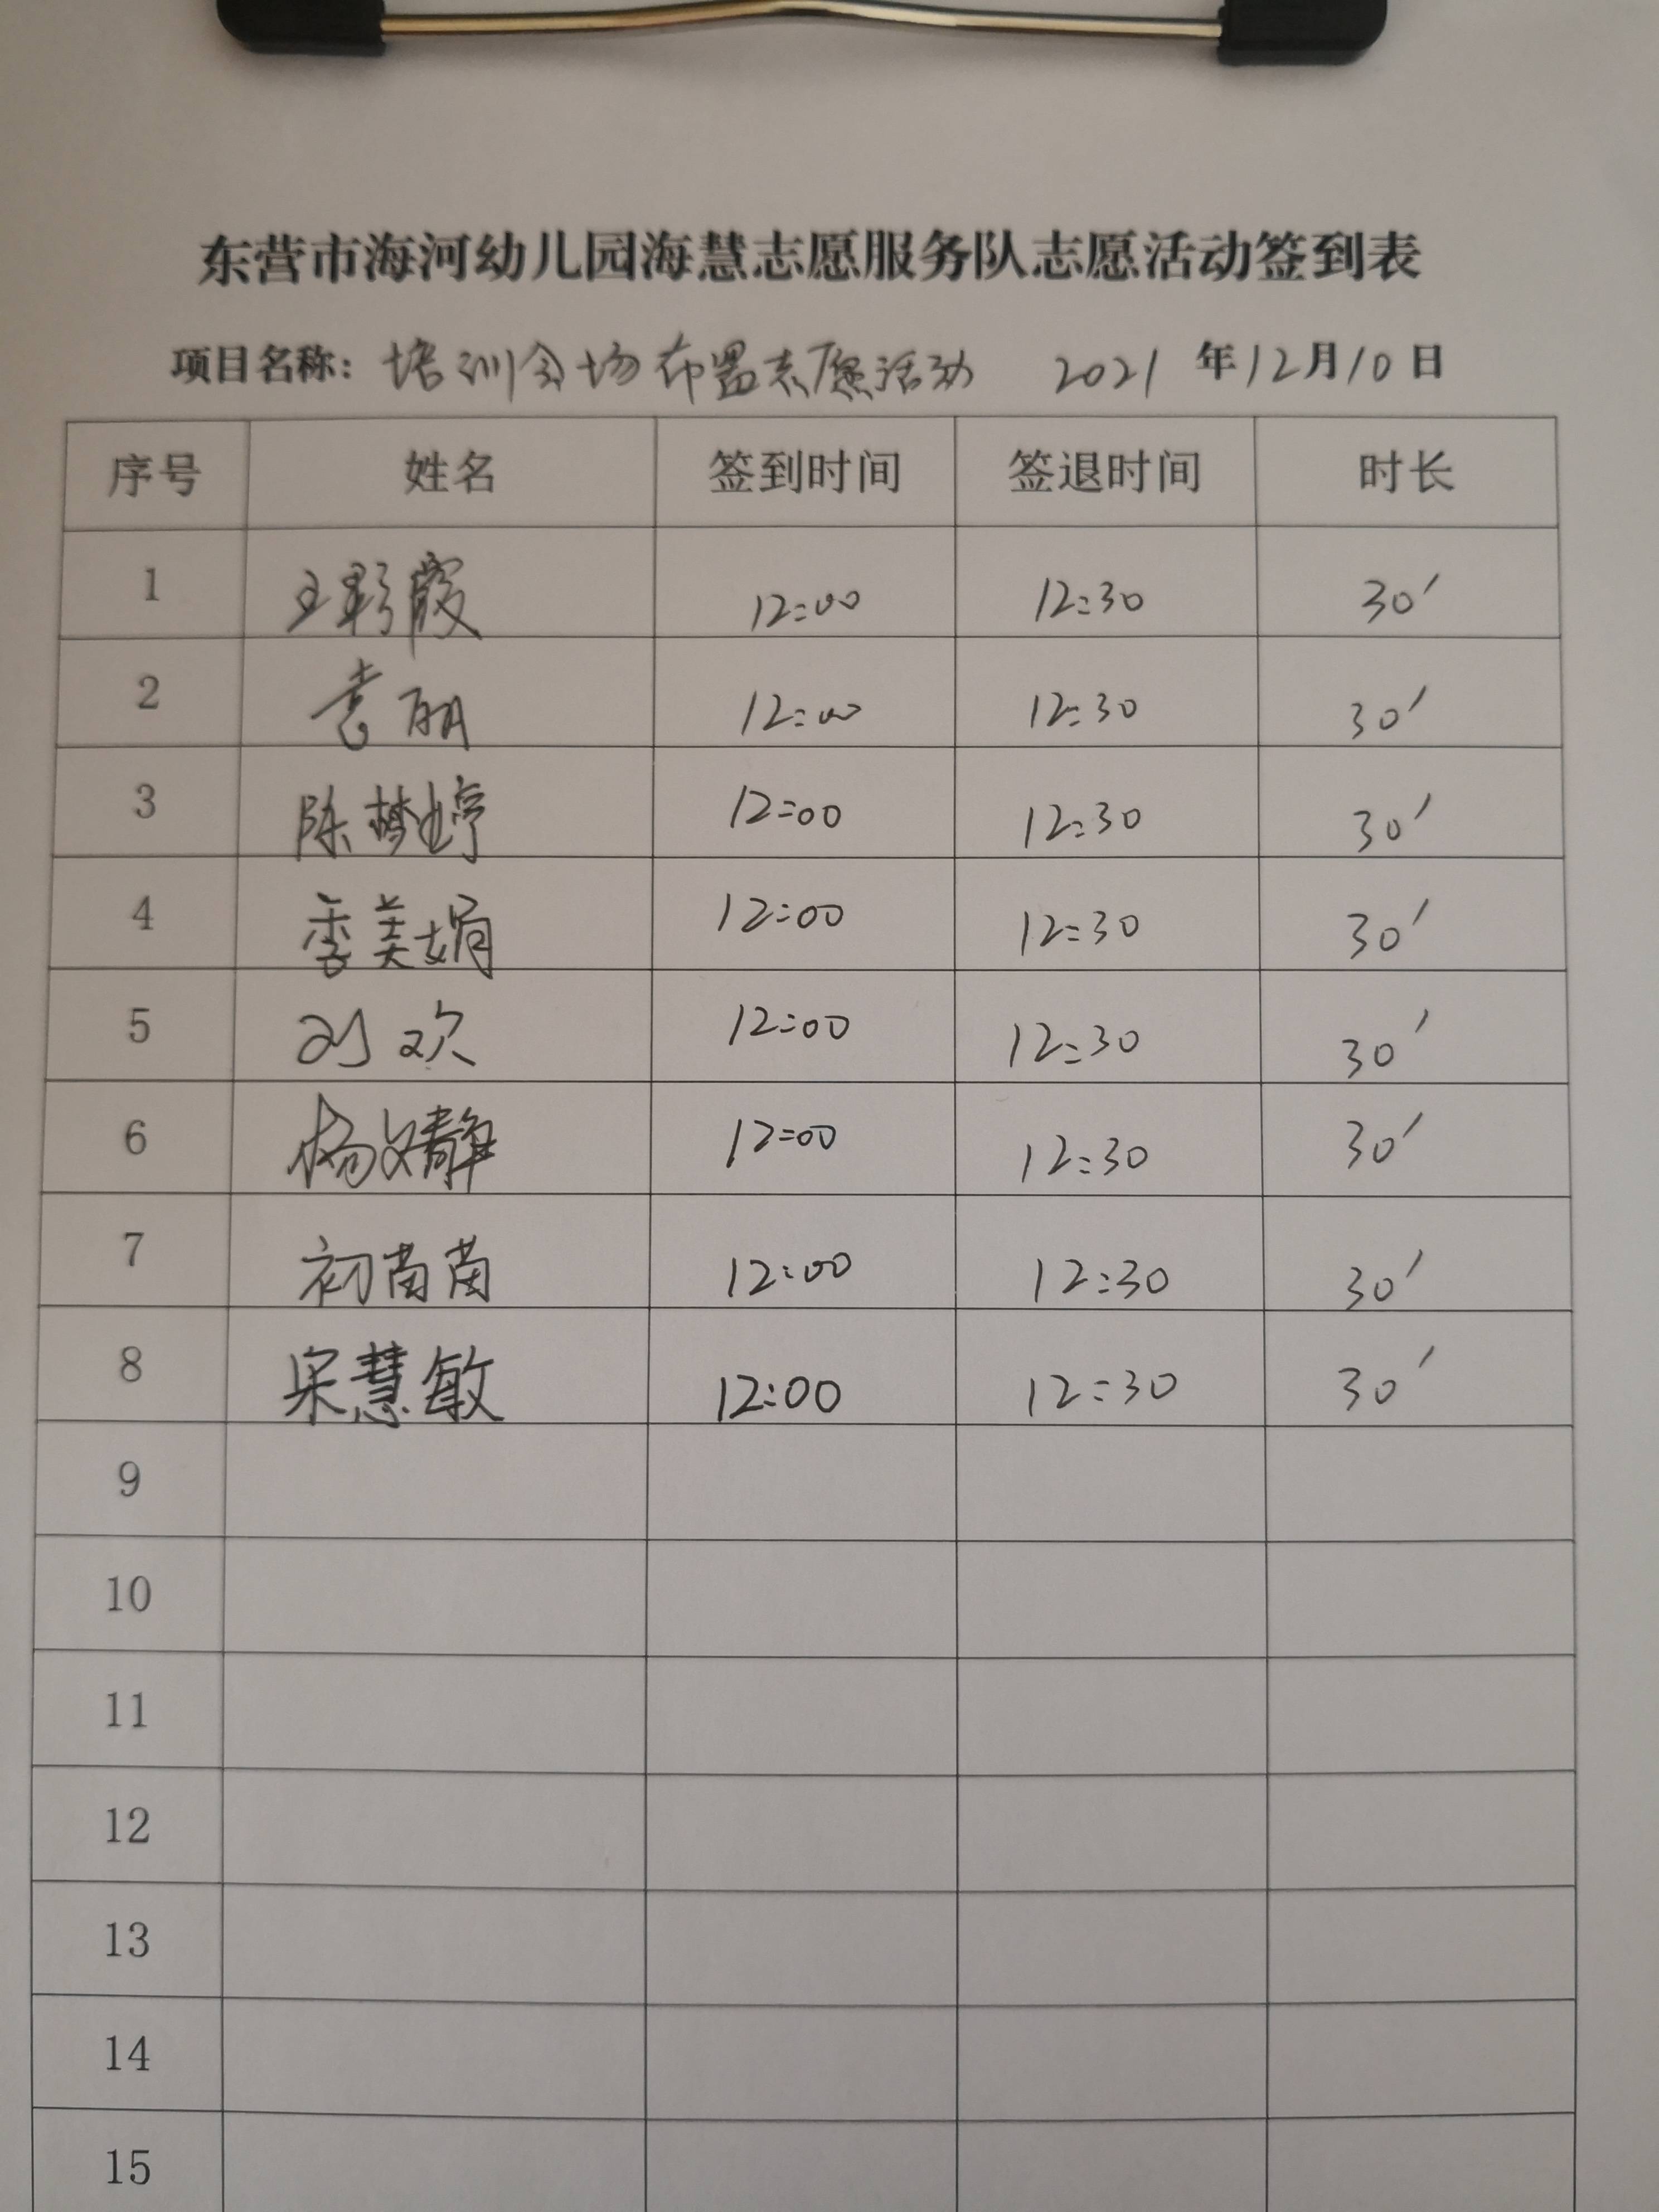 东营市海河幼儿园海慧志愿服务队志愿活动签到表
项目名称：培训会场布置志愿活动 2021年12月10日
序号 姓名 签到时间 签退时间 时长
1 王彩霞 12:00 12:30 30′
2 袁丽 12:00 12:30 30′
3 陈梦婷 12:00 12:30 30′
4 季美娟 12:00 12:30 30′
5 刘欢 12:00 12:30 30′
6 杨文静 12:00 12:30 30′
7 初苗苗 12:00 12:30 30′
8 宋慧敏 12:00 12:30 30′
9
10
11
12
13
14
15